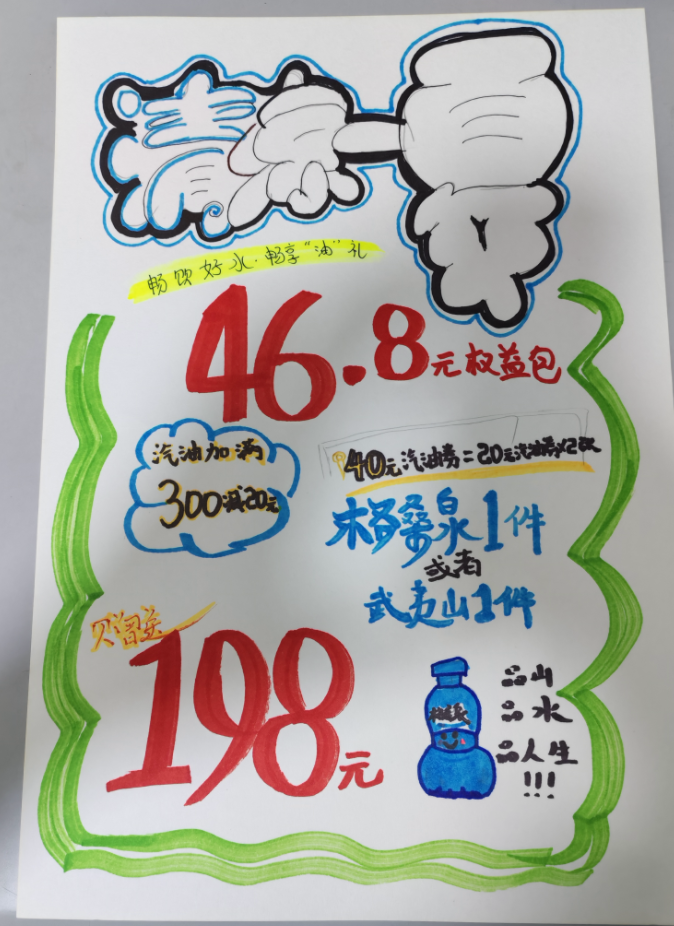 清凉一夏
畅饮好水·畅享"油"礼
46.8元权益包
汽油加满
300减20元
40元汽油券=20元汽油券×2张
格桑泉1件
或者
武夷山1件
198元
品山
品水
品人生
!!!